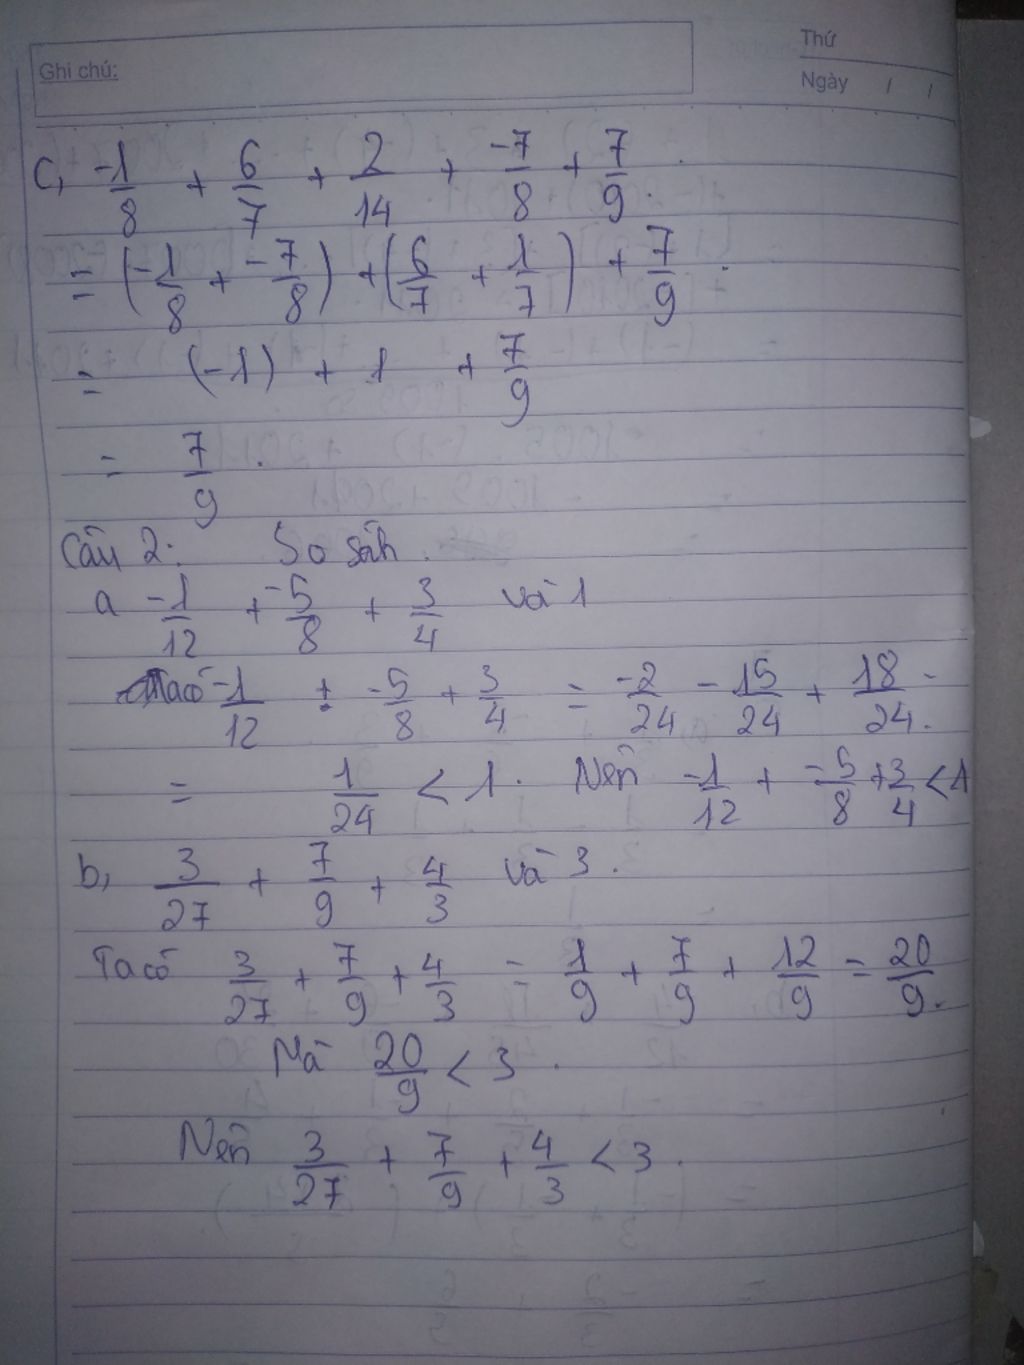 Thứ
Ghi chú:
Ngày / /
c, -1/8 + 6/7 + 2/14 + -7/8 + 7/9.
= (-1/8 + -7/8) + (6/7 + 1/7) + 7/9.
= (-1) + 1 + 7/9
= 7/9.
Câu 2: So sánh.
a -1/12 + -5/8 + 3/4 và 1
Ta có -1/12 + -5/8 + 3/4 = -2/24 - 15/24 + 18/24.
= 1/24 < 1. Nên -1/12 + -5/8 + 3/4 < 1
b, 3/27 + 7/9 + 4/3 và 3.
Ta có 3/27 + 7/9 + 4/3 = 1/9 + 7/9 + 12/9 = 20/9.
Mà 20/9 < 3.
Nên 3/27 + 7/9 + 4/3 < 3.